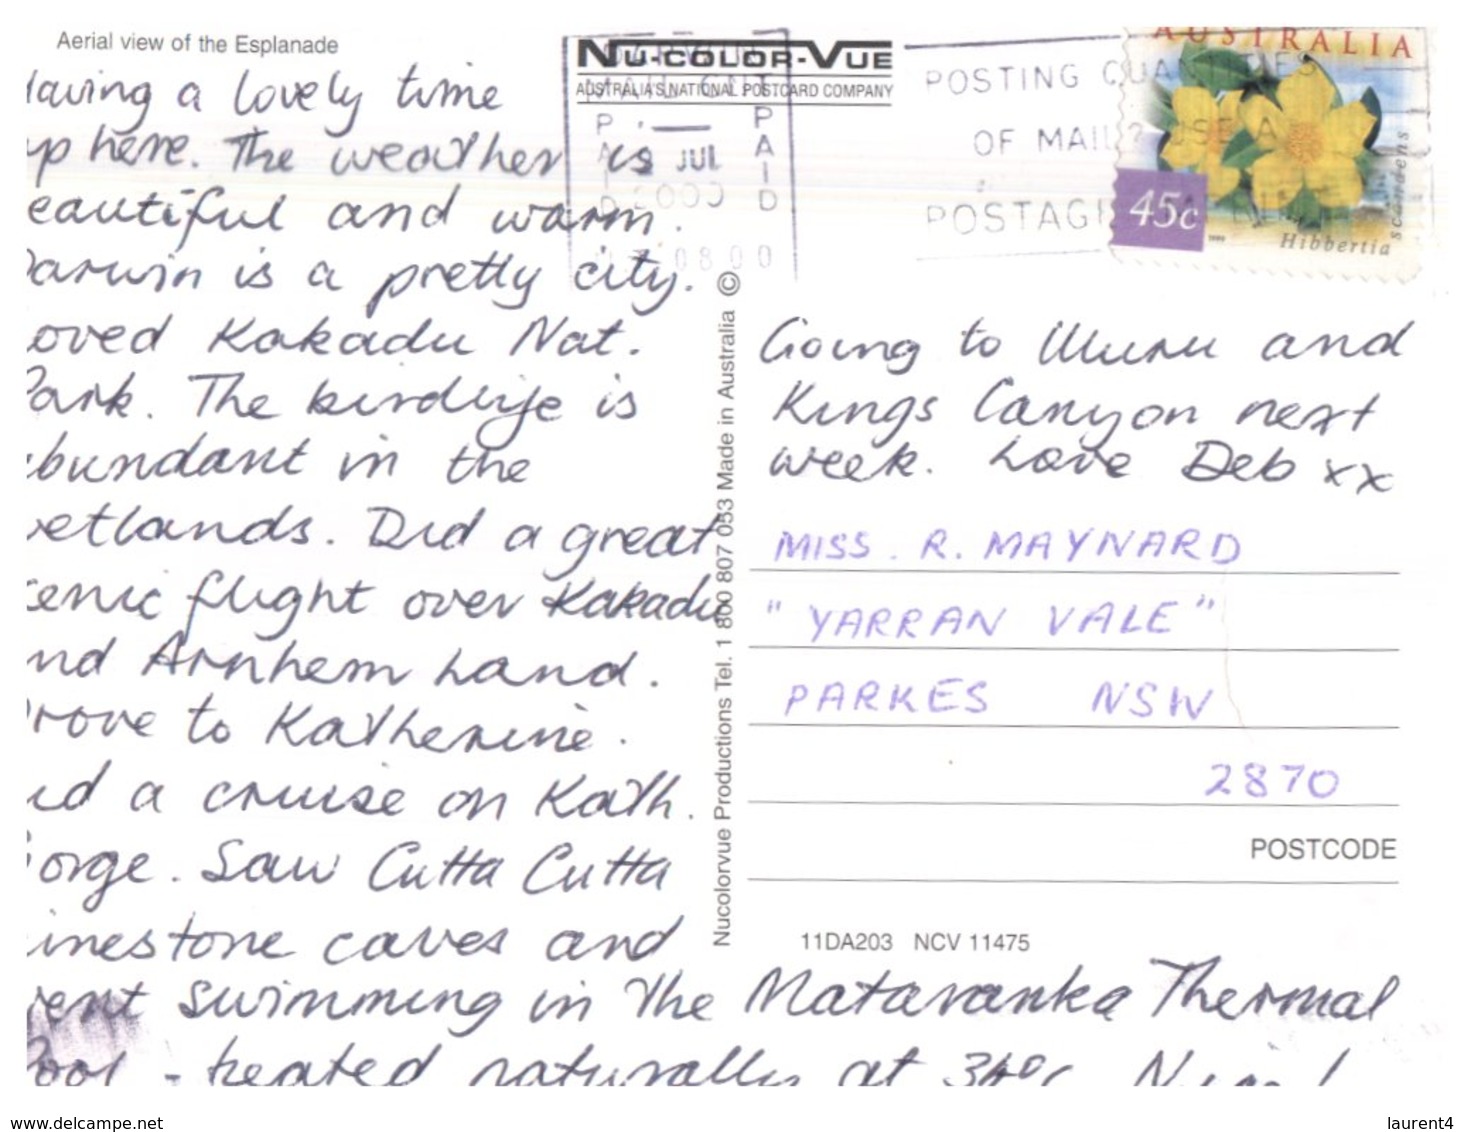 Aerial view of the Esplanade
NU-COLOR-VUE
AUSTRALIA'S NATIONAL POSTCARD COMPANY
PAID
JUL
2000
PAID
0800
POSTING QUANTITIES
OF MAIL? USE A
POSTAGE
AUSTRALIA
45c
Hibbertia
scandens
aving a lovely time
up here. The weather is
eautiful and warm.
arwin is a pretty city.
oved Kakadu Nat.
Park. The birdlife is
bundant in the
etlands. Did a great
cenic flight over Kakadu
nd Arnhem Land.
rove to Katherine.
id a cruise on Kath.
orge. Saw Cutta Cutta
imestone caves and
ent swimming in the Mataranka Thermal
Pool - heated naturally at 34°C.
Going to Uluru and
Kings Canyon next
week. Love Deb xx
MISS. R. MAYNARD
"YARRAN VALE"
PARKES NSW
2870
POSTCODE
11DA203 NCV 11475
Nucolorvue Productions Tel. 1 800 807 053 Made in Australia ©
delcampe.net
laurent4